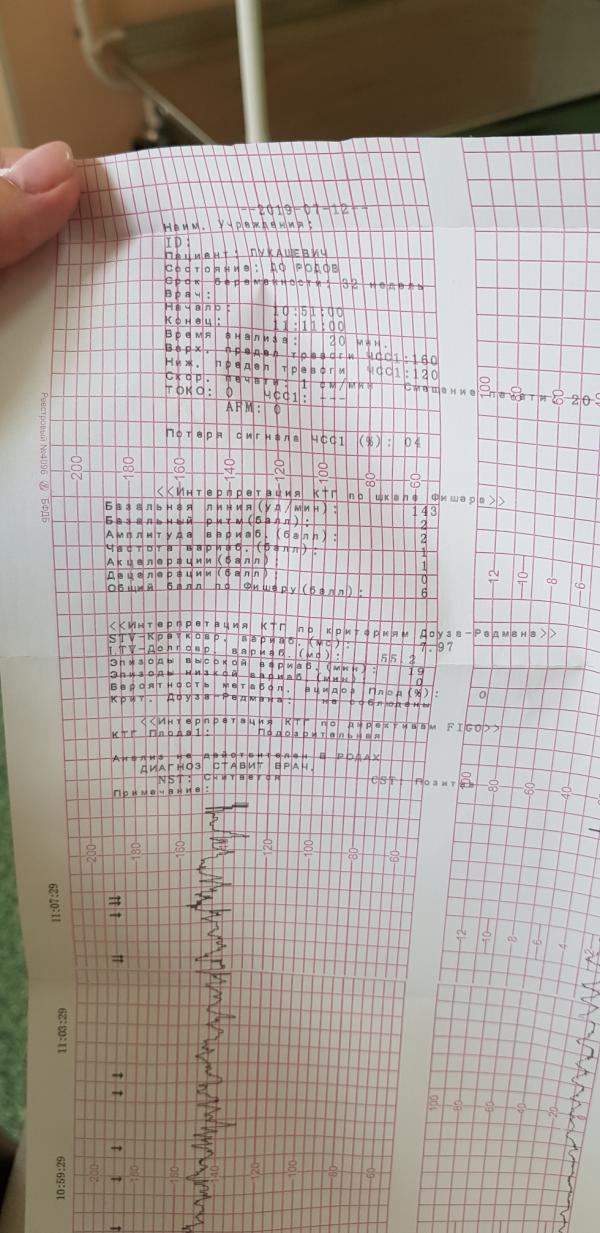 --2019-07-12--
Наим. Учреждения:
ID:
Пациент: ЛУКАШЕВИЧ
Состояние: ДО РОДОВ
Срок беременности: 32 недель
Врач:
Начало: 10:51:00
Конец: 11:11:00
Время анализа: 20 мин.
Верх. предел тревоги ЧСС1:160
Ниж. предел тревоги ЧСС1:120
Скор. печати: 1 см/мин Смещение печати 20
ТОКО: 0 ЧСС1: ---
AFM: 0
Потеря сигнала ЧСС1 (%): 04
200 180 160 140 120 100 80 60
<<Интерпретация КТГ по шкале Фишера>>
Базальная линия(уд/мин): 143
Базальный ритм(балл): 2
Амплитуда вариаб.(балл): 2
Частота вариаб.(балл): 1
Акцелерации(балл): 1
Децелерации(балл): 0
Общий балл по Фишеру(балл): 6
<<Интерпретация КТГ по критериям Доуза-Редмана>>
STV-Кратковр. вариаб.(мс): 7.97
LTV-Долговр. вариаб.(мс): 55.2
Эпизоды высокой вариаб.(мин): 19
Эпизоды низкой вариаб.(мин): 0
Вероятность метабол. ацидоз Плод(%): 0
Крит. Доуза-Редмана: не соблюдены
<<Интерпретация КТГ по директивам FIGO>>
КТГ Плода1: Подозрительная
Анализ не действителен В РОДАХ
ДИАГНОЗ СТАВИТ ВРАЧ.
NST: Считается CST: Позитв
Примечание:
200 180 160 140 120 100 80 60
11:07:29
11:03:29
10:59:29
200 180 160 140 120 100 80 60
Реестровый №4096 БФДБ
100 80 60
12 10 8 6
100 80 60 40
12 10 8 6 4 2
100 80 60 40 20